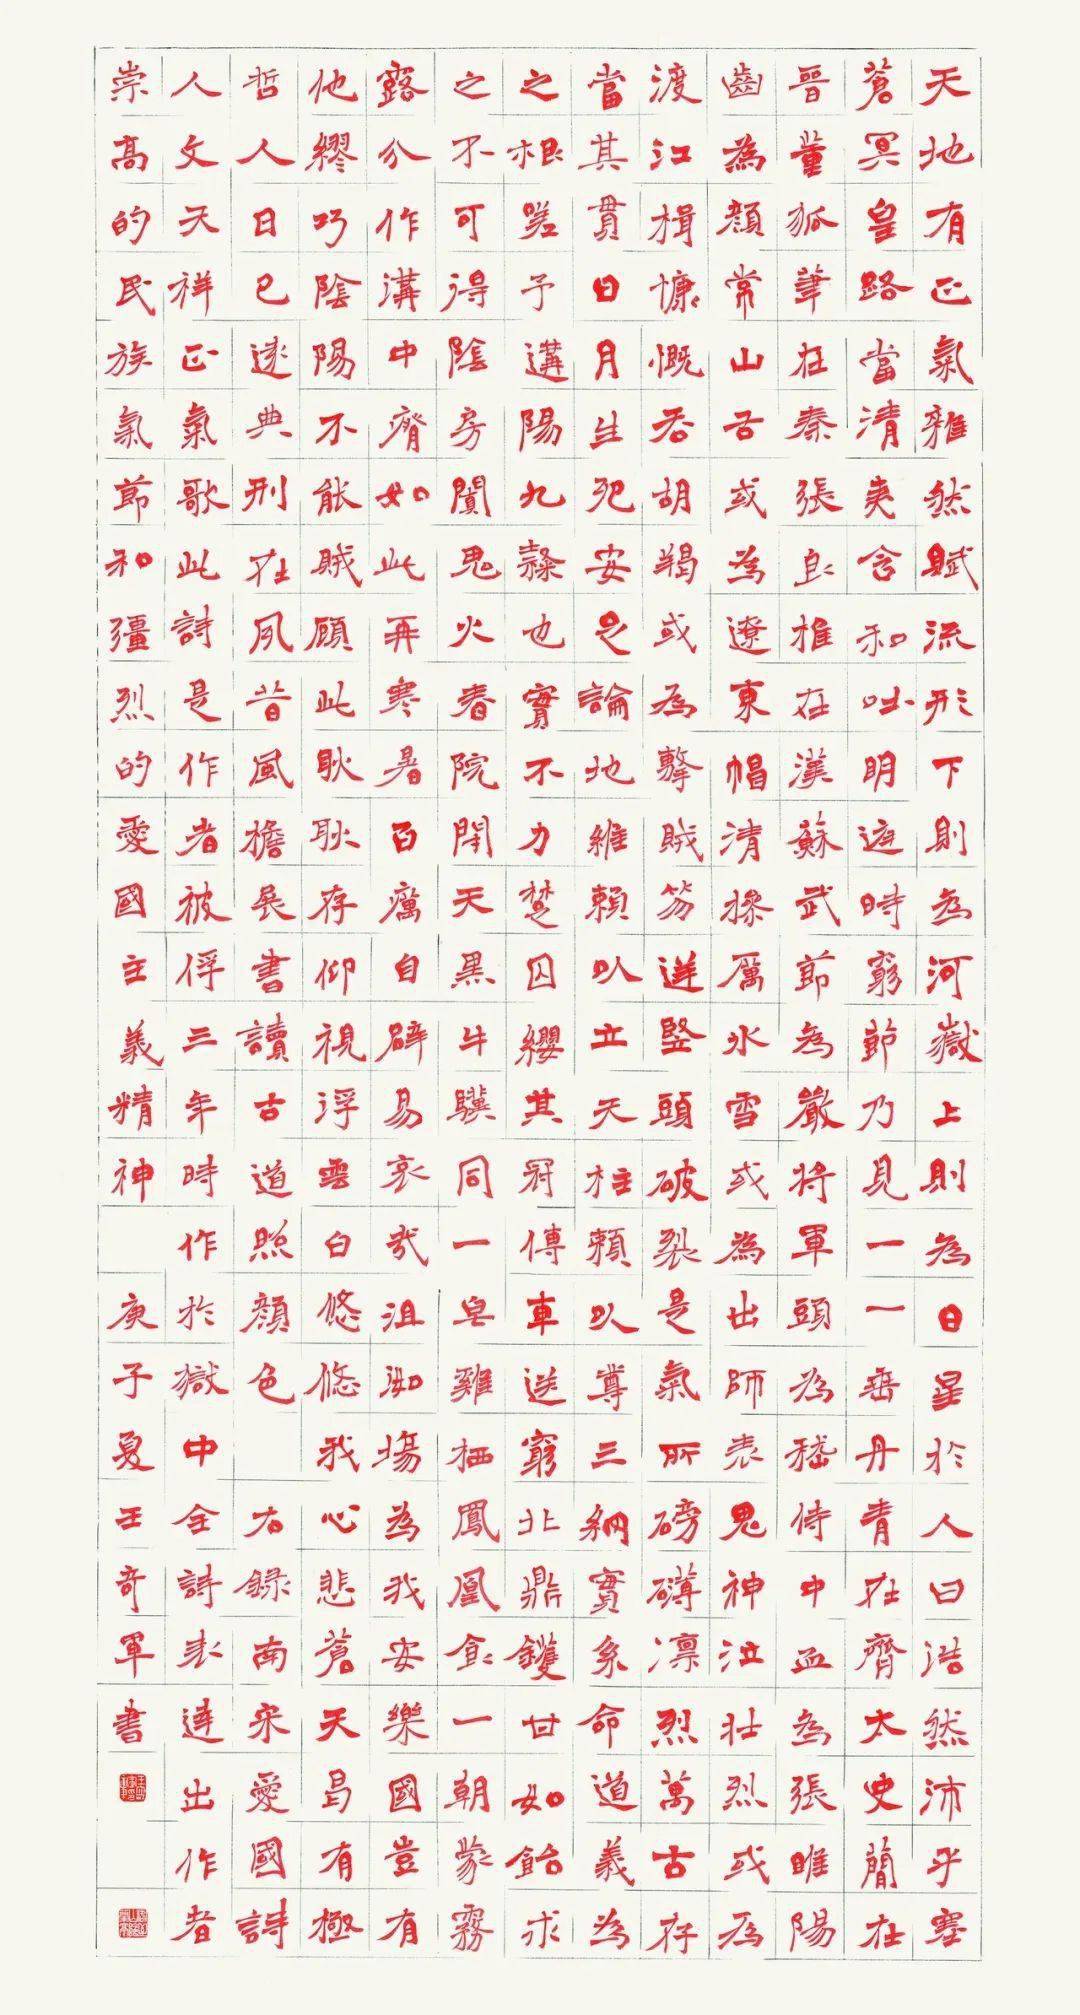 天地有正氣雜然賦流形下則為河嶽上則為日星於人曰浩然沛乎塞
蒼冥皇路當清夷含和吐明庭時窮節乃見一一垂丹青在齊太史簡在
晉董狐筆在秦張良椎在漢蘇武節為嚴將軍頭為嵇侍中血為張睢陽
齒為顏常山舌或為遼東帽清操厲冰雪或為出師表鬼神泣壯烈或為
渡江楫慷慨吞胡羯或為擊賊笏逆豎頭破裂是氣所磅礴凜烈萬古存
當其貫日月生死安足論地維賴以立天柱賴以尊三綱實系命道義為
之根嗟予遘陽九隸也實不力楚囚纓其冠傳車送窮北鼎鑊甘如飴求
之不可得陰房闃鬼火春院閉天黑牛驥同一皂雞栖鳳凰食一朝蒙霧
露分作溝中瘠如此再寒暑百癘自辟易哀哉沮洳場為我安樂國豈有
他繆巧陰陽不能賊顧此耿耿存仰視浮雲白悠悠我心悲蒼天曷有極
哲人日已遠典刑在夙昔風檐展書讀古道照顏色 右錄南宋愛國詩
人文天祥正氣歌此詩是作者被俘三年時作於獄中全詩表達出作者
崇高的民族氣節和彊烈的愛國主義精神 庚子夏王奇軍書